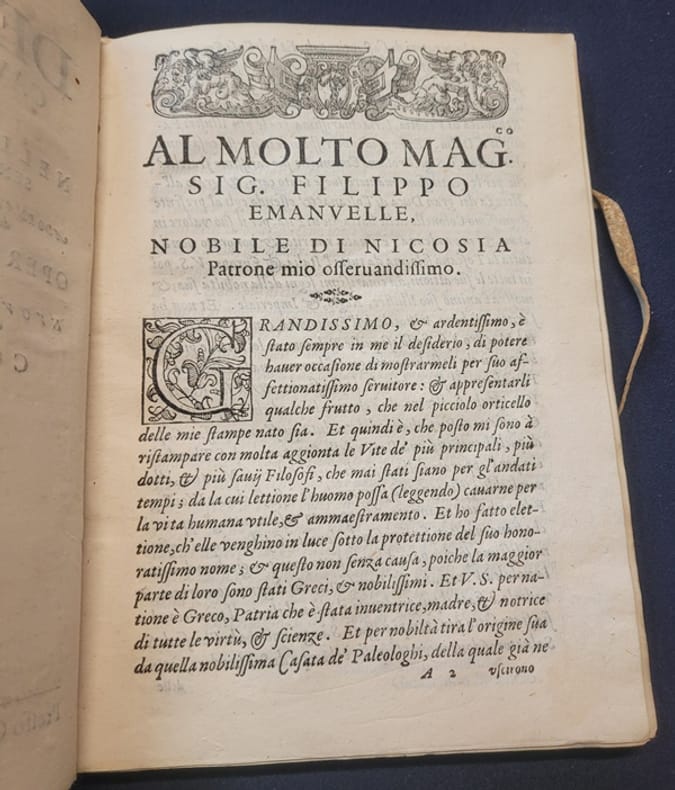 AL MOLTO MAG.co
SIG. FILIPPO
EMANVELLE,
NOBILE DI NICOSIA
Patrone mio osseruandissimo.
GRANDISSIMO, & ardentissimo, è
stato sempre in me il desiderio, di potere
hauer occasione di mostrarmeli per suo af-
fettionatissimo seruitore: & appresentarli
qualche frutto, che nel picciolo orticello
delle mie stampe nato sia. Et quindi è, che posto mi sono à
ristampare con molta aggionta le Vite de' più principali, più
dotti, & più sauij Filosofi, che mai stati siano per gl'andati
tempi; da la cui lettione l'huomo possa (leggendo) cauarne per
la vita humana vtile, & ammaestramento. Et ho fatto elet-
tione, ch'elle venghino in luce sotto la protettione del suo hono-
ratissimo nome; & questo non senza causa, poiche la maggior
parte di loro sono stati Greci, & nobilissimi. Et V. S. per na-
tione è Greco, Patria che è stata inuentrice, madre, & notrice
di tutte le virtù, & scienze. Et per nobiltà tira l'origine sua
da quella nobilissima Casata de' Paleologhi, della quale già ne
A 2 vscirono